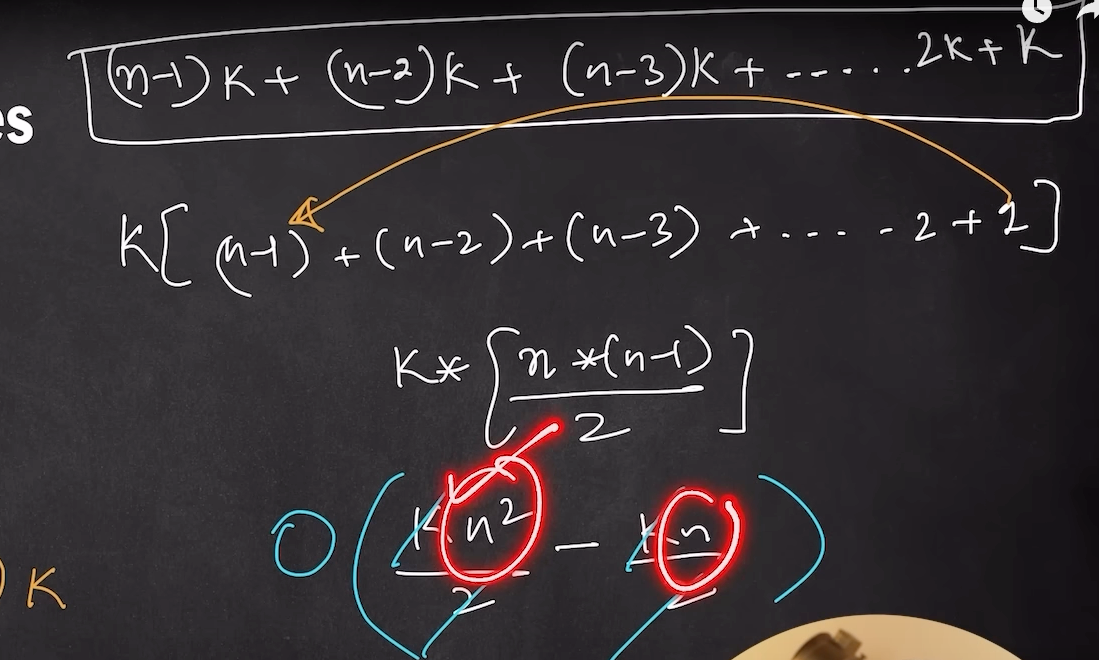 (n-1)K + (n-2)K + (n-3)K + ...... 2K + K
es
K[ (n-1) + (n-2) + (n-3) + .... - 2 + 1 ]
K* [ n *(n-1) / 2 ]
O ( K n² / 2 - K n / 2 )
) K